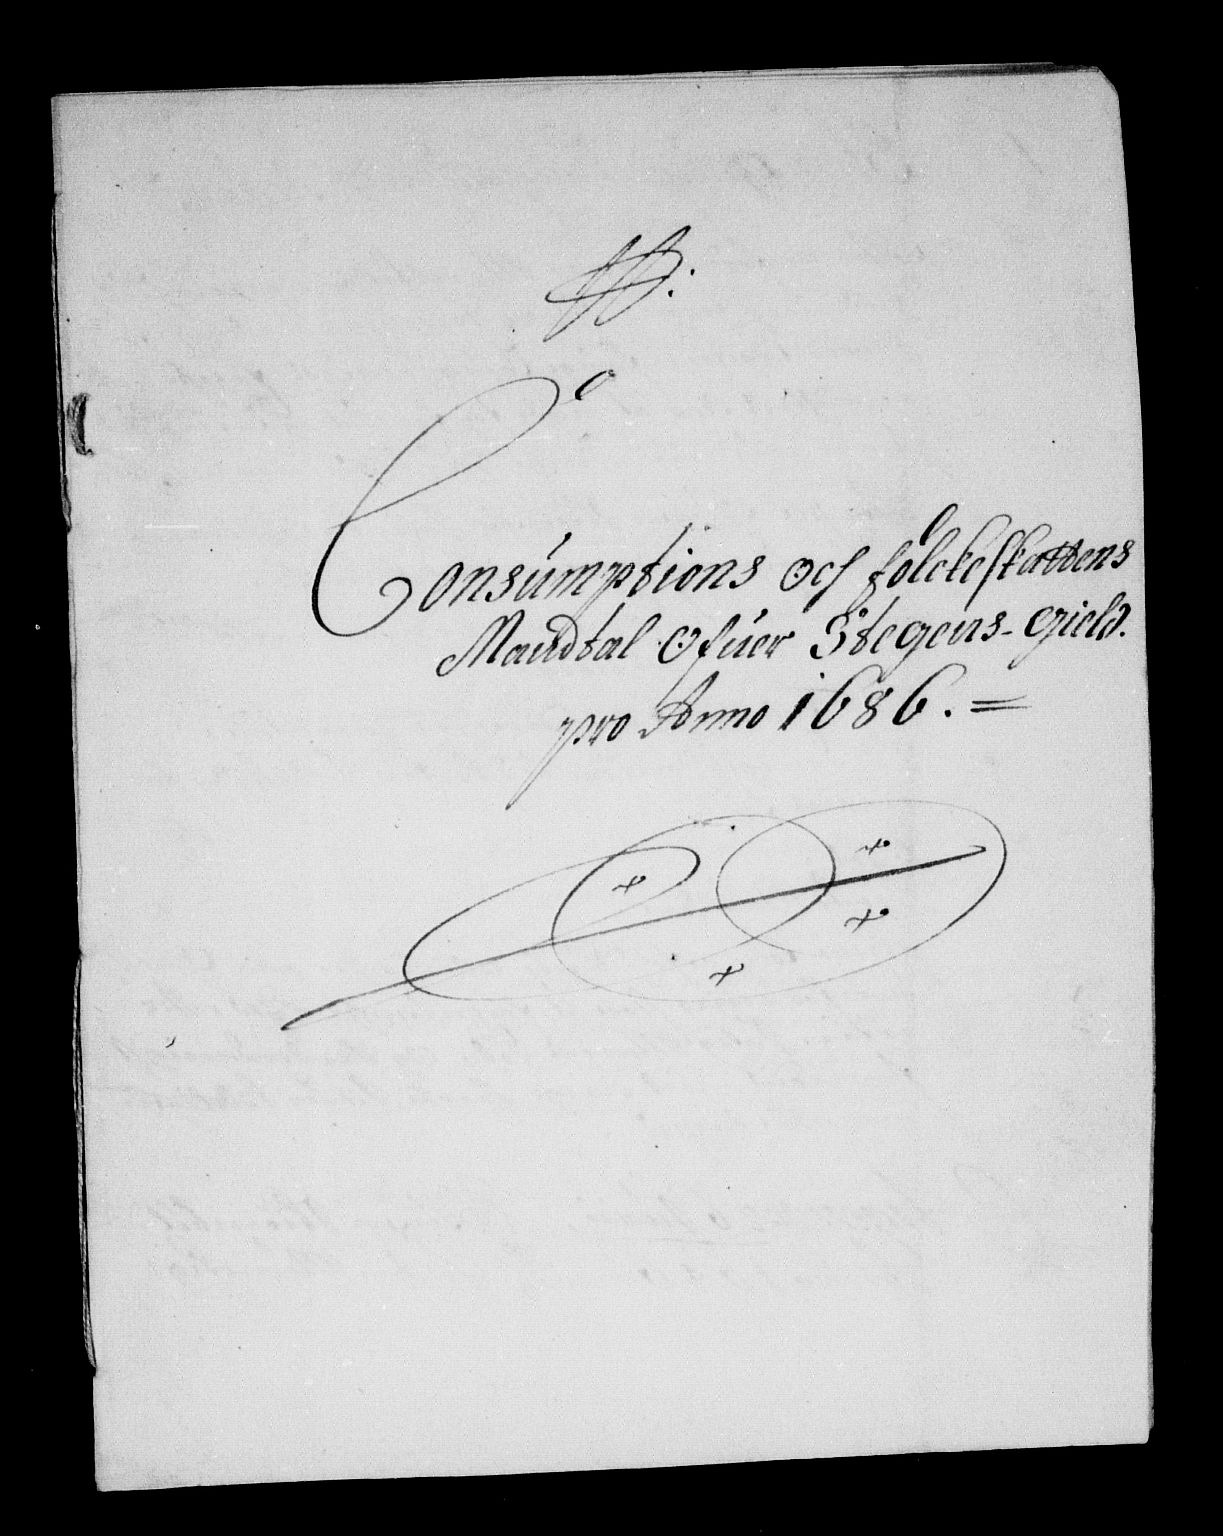 Consumptions och folckeskattens
Mandtal Ofuer Stegens-gield.
pro Anno 1686. =